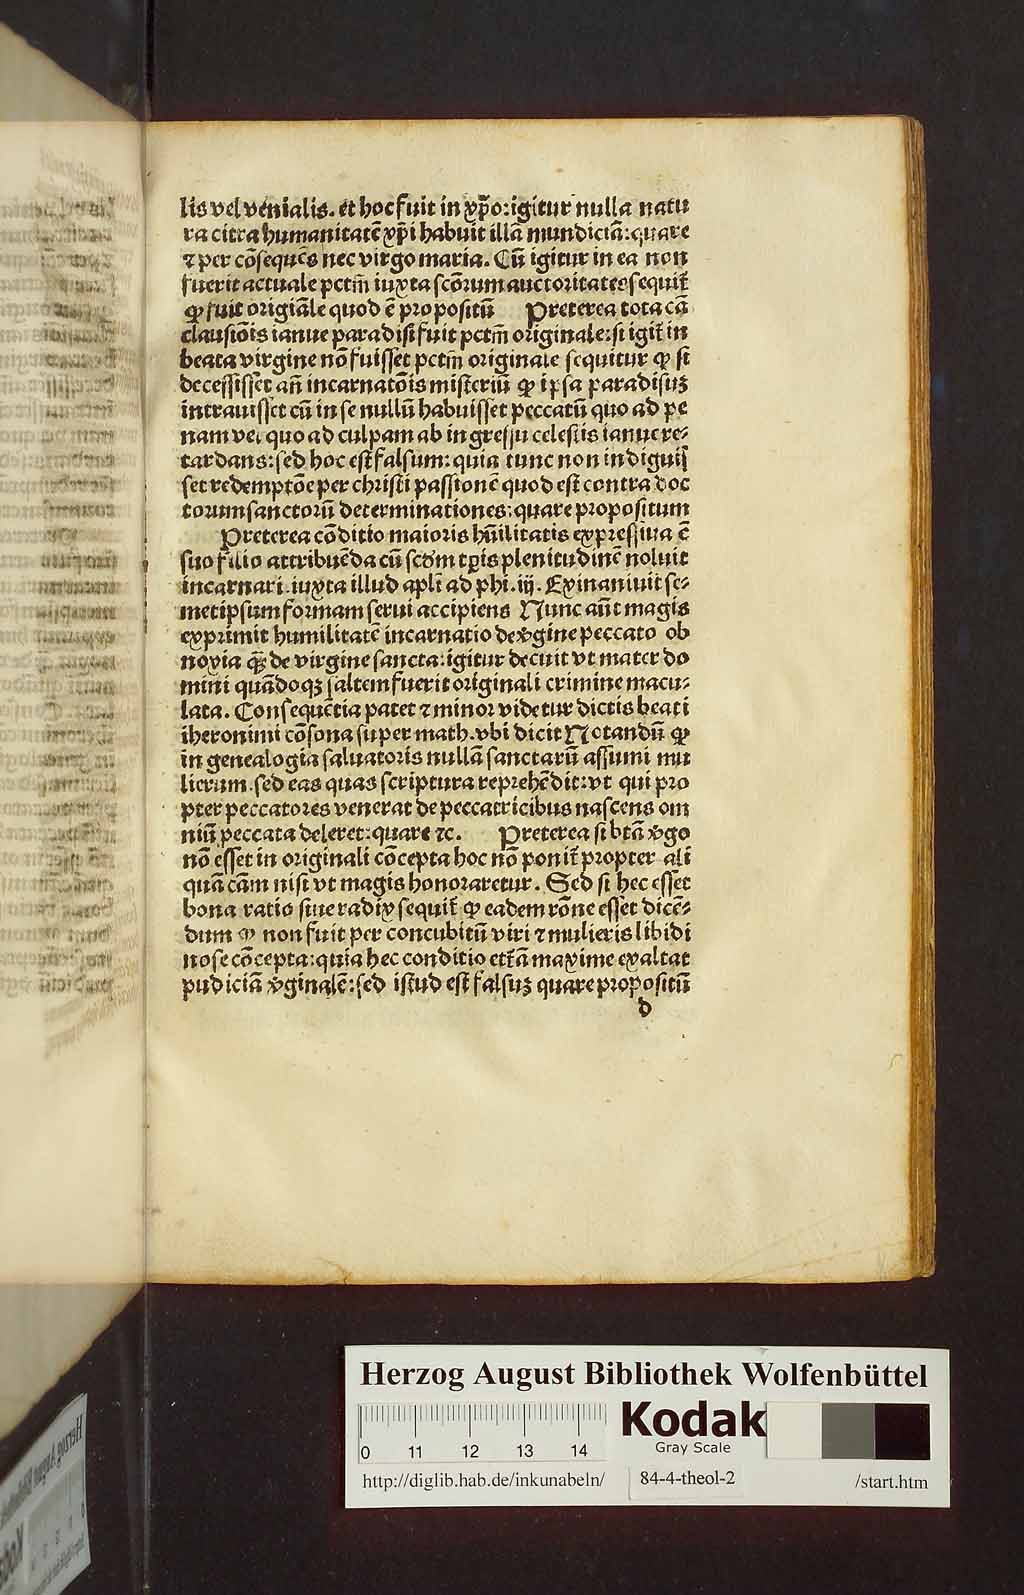 lis vel venialis. et hoc fuit in xp̄o: igitur nulla natu
ra citra humanitatē xp̄i habuit illā mundiciā: quare
⁊ per cōsequēs nec virgo maria. Cū igitur in ea non
fuerit actuale pctm̄ iuxta scōrum auctoritates sequit᷑
ꝙ fuit origiāle quod ē propositū Preterea tota cā
clausiōis ianue paradisi fuit pctm̄ originale: si igit᷑ in
beata virgine nō fuisset pctm̄ originale sequitur ꝙ si
decessisset an̄ incarnatōis misteriū ꝙ ipsa paradisuꝫ
intrauisset cū in se nullū habuisset peccatū quo ad pe
nam vel quo ad culpam ab ingressu celestis ianue re⸗
tardans: sed hoc est falsum: quia tunc non indiguis
set redemptōe per christi passionē quod est contra doc
torum sanctorū determinationes: quare propositum
Preterea cōditio maioris hūilitatis expressiua ē
suo filio attribuēda cū scḋm tp̄is plenitudinē noluit
incarnari. iuxta illud apl̄i ad phi. iij. Exinaniuit se⸗
metipsum formam serui accipiens Nunc aūt magis
exprimit humilitatē incarnatio de v̄gine peccato ob
noxia qꝫ̄ de virgine sancta: igitur decuit vt mater do
mini quādoqꝫ saltem fuerit originali crimine macu⸗
lata. Consequētia patet ⁊ minor videtur dictis beati
iheronimi cōsona super math. vbi dicit Notandū ꝙ
in genealogia saluatoris nullā sanctarū assumi mu
lierum. sed eas quas scriptura reprehēdit: vt qui pro
pter peccatores venerat de peccatricibus nascens om
niū peccata deleret: quare ⁊c. Preterea si btā v̄go
nō esset in originali cōcepta hoc nō ponit᷑ propter ali
quā cām nisi vt magis honoraretur. Sed si hec esset
bona ratio siue radix sequit᷑ ꝙ eadem rōne esset dicē⸗
dum ꝙ non fuit per concubitū viri ⁊ mulieris libidi
nose cōcepta: quia hec conditio etīā maxime exaltat
pudiciā v̄ginalē: sed istud est falsuꝫ quare propositū
d
Herzog August Bibliothek Wolfenbüttel
0 11 12 13 14
Kodak
Gray Scale
http://diglib.hab.de/inkunabeln/ 84-4-theol-2 /start.htm